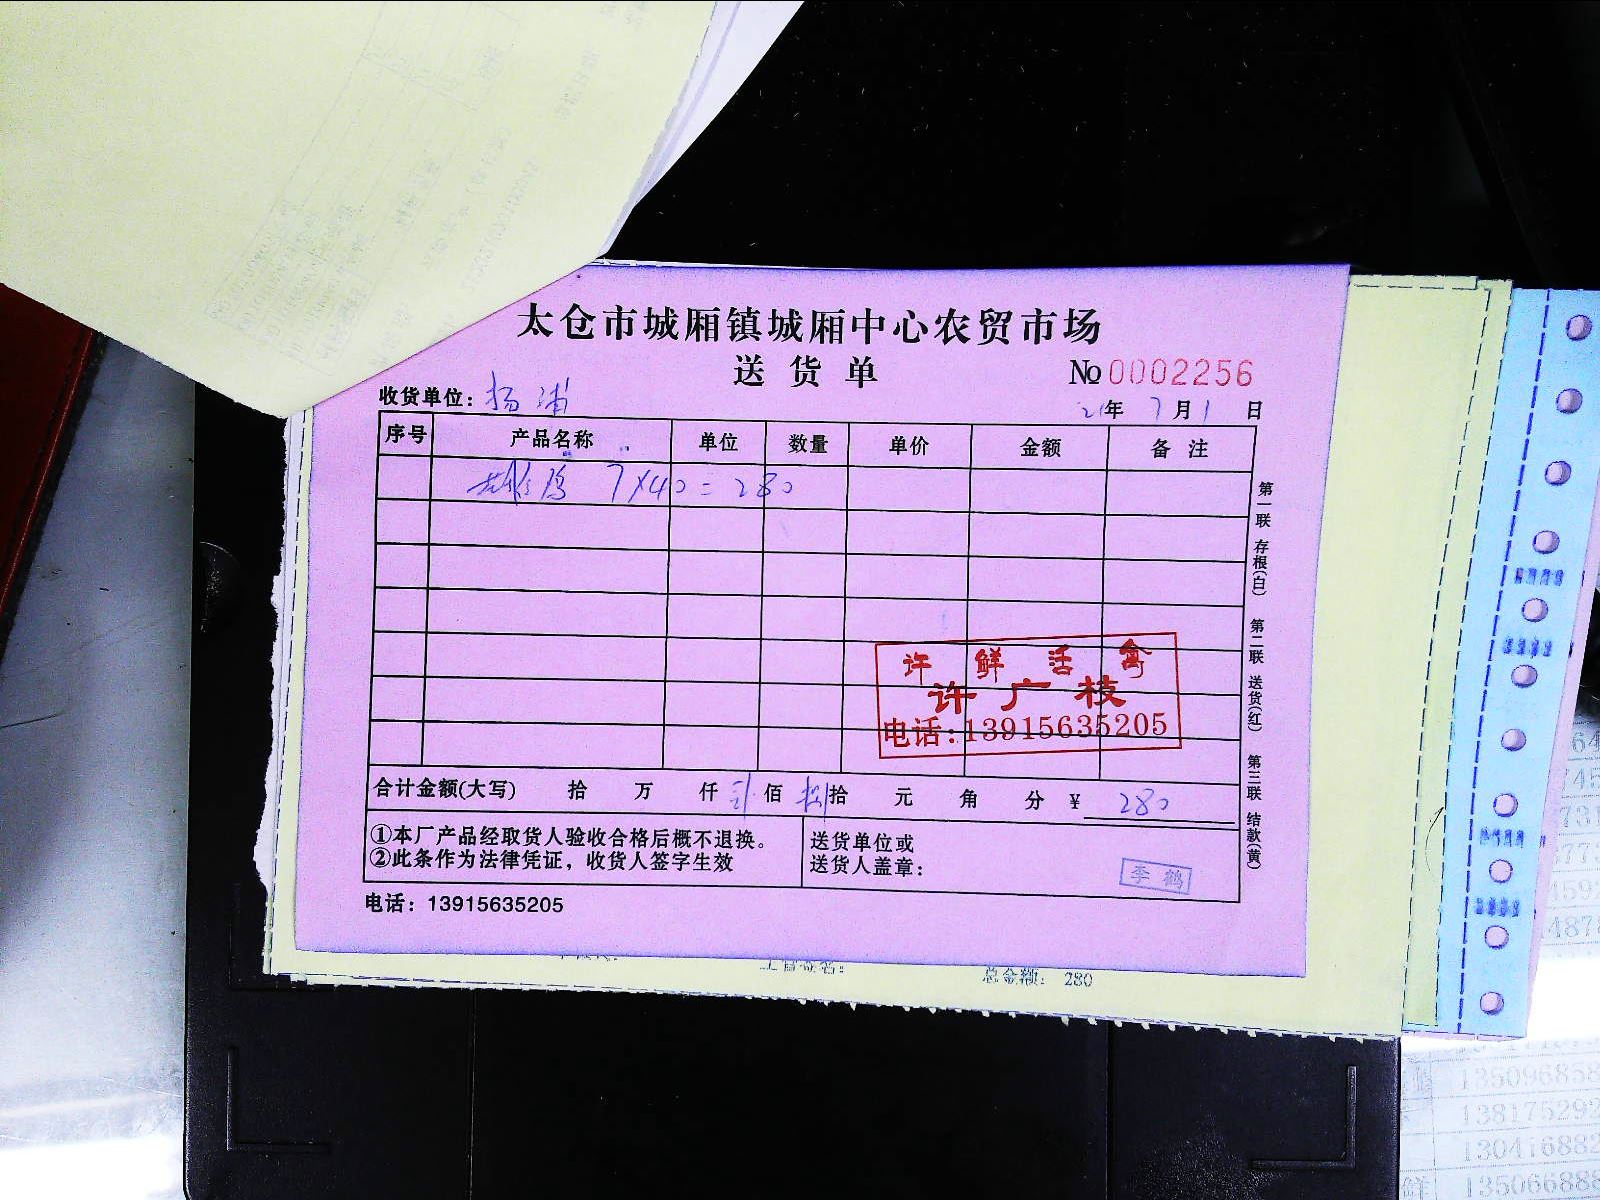 太仓市城厢镇城厢中心农贸市场
送货单
№0002256
收货单位：杨浦
21年7月1日
序号 产品名称 单位 数量 单价 金额 备注
鸡 7×40=280
第一联 存根(白) 第二联 送货(红) 第三联 结款(黄)
许鲜活禽
许广枝
电话:13915635205
合计金额(大写) 拾 万 仟 贰佰 捌拾 元 角 分 ¥ 280
①本厂产品经取货人验收合格后概不退换。
②此条作为法律凭证，收货人签字生效
送货单位或
送货人盖章：
李鹤
电话：13915635205
总金额： 280
13509685
13817529
13041688
13506688